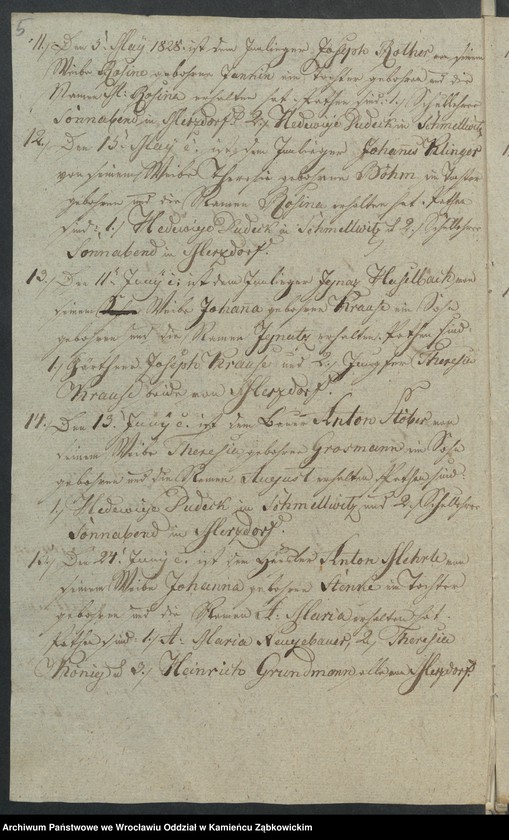 5
11.) Den 5t May 1828 ist dem Inlieger Joseph Rother von seinem
Weibe Rosine gebohrne eine Tochter gebohren und die
Namen M: Rosina erhalten hat. Pathen sind: 1.) Schullehrer
Sönnabend in Merzdorf. 2.) Hedewige Dudeck in Schmellwitz
12.) Den 15t May c. ist dem Inlieger Johanes Klinger
von seinem Weibe Theresie gebohrne Böhm in Tochter
gebohren und die Namen Rosina erhalten hat. Pathen
sind: 1.) Hedewige Dudeck in Schmellwitz 2.) Schullehrer
Sönnabend in Merzdorf.
13.) Den 11t Juny c. ist dem Inlieger Ignaz Haselbach von
seinem Weibe Johanna gebohrne Krause ein Sohn
gebohren und die Namen Ignatz erhalten. Pathen sind
1.) Gärtner Joseph Krause und 2.) Jungfer Theresia
Krause beide von Merzdorf.
14.) Den 13t Juny c. ist dem Bauer Anton Stöher von
seinem Weibe Theresia gebohrne Grosmann ein Sohn
gebohren und die Namen August erhalten Pathen sind:
1.) Hedewige Dudeck in Schmellwitz und 2.) Schullehrer
Sönnabend in Merzdorf.
15.) Den 24t Juny c. ist dem Häusler Anton Mehrle von
seinem Weibe Johanna gebohrne Stenke in Tochter
gebohren und die Namen A: Maria erhalten hat.
Pathen sind: 1.) A: Maria Neugebauer, 2.) Theresia
König 3.) Heinrich Grundmann alle von Merzdorf.
Archiwum Państwowe we Wrocławiu Oddział w Kamieńcu Ząbkowickim